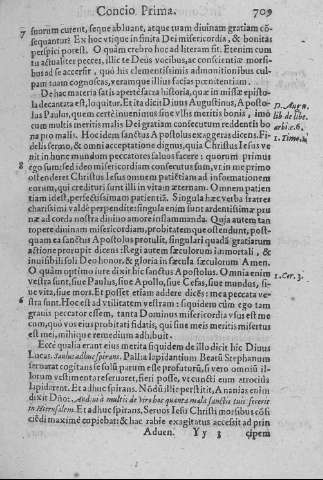 Concio Prima. 709
7 suorum curent, seque abluant, atque tuam diuinam gratiam cõ-
sequantur? Ex hoc vtique infinita Dei misericordia, & bonitas
perspici potest. O quàm crebro hoc ad literam fit. Etenim cum
tu actualiter pecces, illic te Deus vocibus, ac conscientiæ morsi-
bus ad se accersit, quò his clementissimis admonitionibus cul-
pam tuam cognoscas, veramque illius facias pœnitentiam.
De hac materia satis aperte sacra historia, quæ in missæ episto-
la decantata est, loquitur. Et ita dicit Diuus Augustinus, Aposto-
lus Paulus, quem certè inuenimus sine vllis meritis bonis, immo
cum multis meritis malis Dei gratiam consecutum reddentis bo
na pro malis. Hoc idem sanctus Apostolus exaggerās dicens. Fi-
delis sermo, & omni acceptione dignus, quia Christus Iesus ve
nit in hunc mundum peccatores saluos facere: quorum primus
8 ego sum: sed ideo misericordiam consecutus sum, vt in me primo
ostenderet Christus Iesus omnem patiētiam ad informationem
eorum, qui credituri sunt illi in vitam æternam. Omnem patien
tiam idest, perfectissimam patientiā. Singula hæc verba fratres
charissimi valdè perpendite: singula enim sunt ardentissimæ pru
næ ad corda nostra diuino amore inflammanda. Quia autem tan
topere diuinam misericordiam, probitatemque ostendunt, post-
quam ea sanctus Apostolus protulit, singulari quadā gratiarum
actione prorupit dicens: Regi autem sæculorum immortali, &
inuisibili soli Deo honor, & gloria in sæcula sæculorum Amen.
O quàm optimo iure dixit hic sanctus Apostolus. Omnia enim
vestra sunt, siue Paulus, siue Apollo, siue Cefas, siue mundus, si-
ue vita, siue mors. Et posset etiam addere dicēs: mea peccata ve-
6 stra sunt. Hoc est ad vtilitatem vestram: siquidem cùm ego tam
grauis peccator essem, tanta Dominus misericordia vsus est me
cum, quò vos eius probitati fidatis, qui sine meis meritis misertus
est mei, mihique remedium adhibuit.
Ecce qualia erant eius merita siquidem de illo dicit hic Diuus
Lucas. Saulus adhuc spirans. Pallia lapidantium Beatū Stephanum
seruarat cogitans se solū parum esse profuturū, si vero omniū il-
lorum vestimenta reseruaret, fieri posse, vt cuncti eum atrociùs
lapidarent. Et adhuc spirans. Nōdū illic perstitit, Ananias enim
dixit Dño: Audiui à multis de viro hoc quanta mala sanctis tuis fecerit
in Hierusalem. Et adhuc spirans. Seruos Iesu Christi morsibus cōsi
ciēdi maximè cupiebat: & hac rabie exagitatus accessit ad prin
Aduen. Yy 3 cipem
D. Aug.
lib de libe.
arbi. c. 6.
1. Timo.
1. Cor. 3.